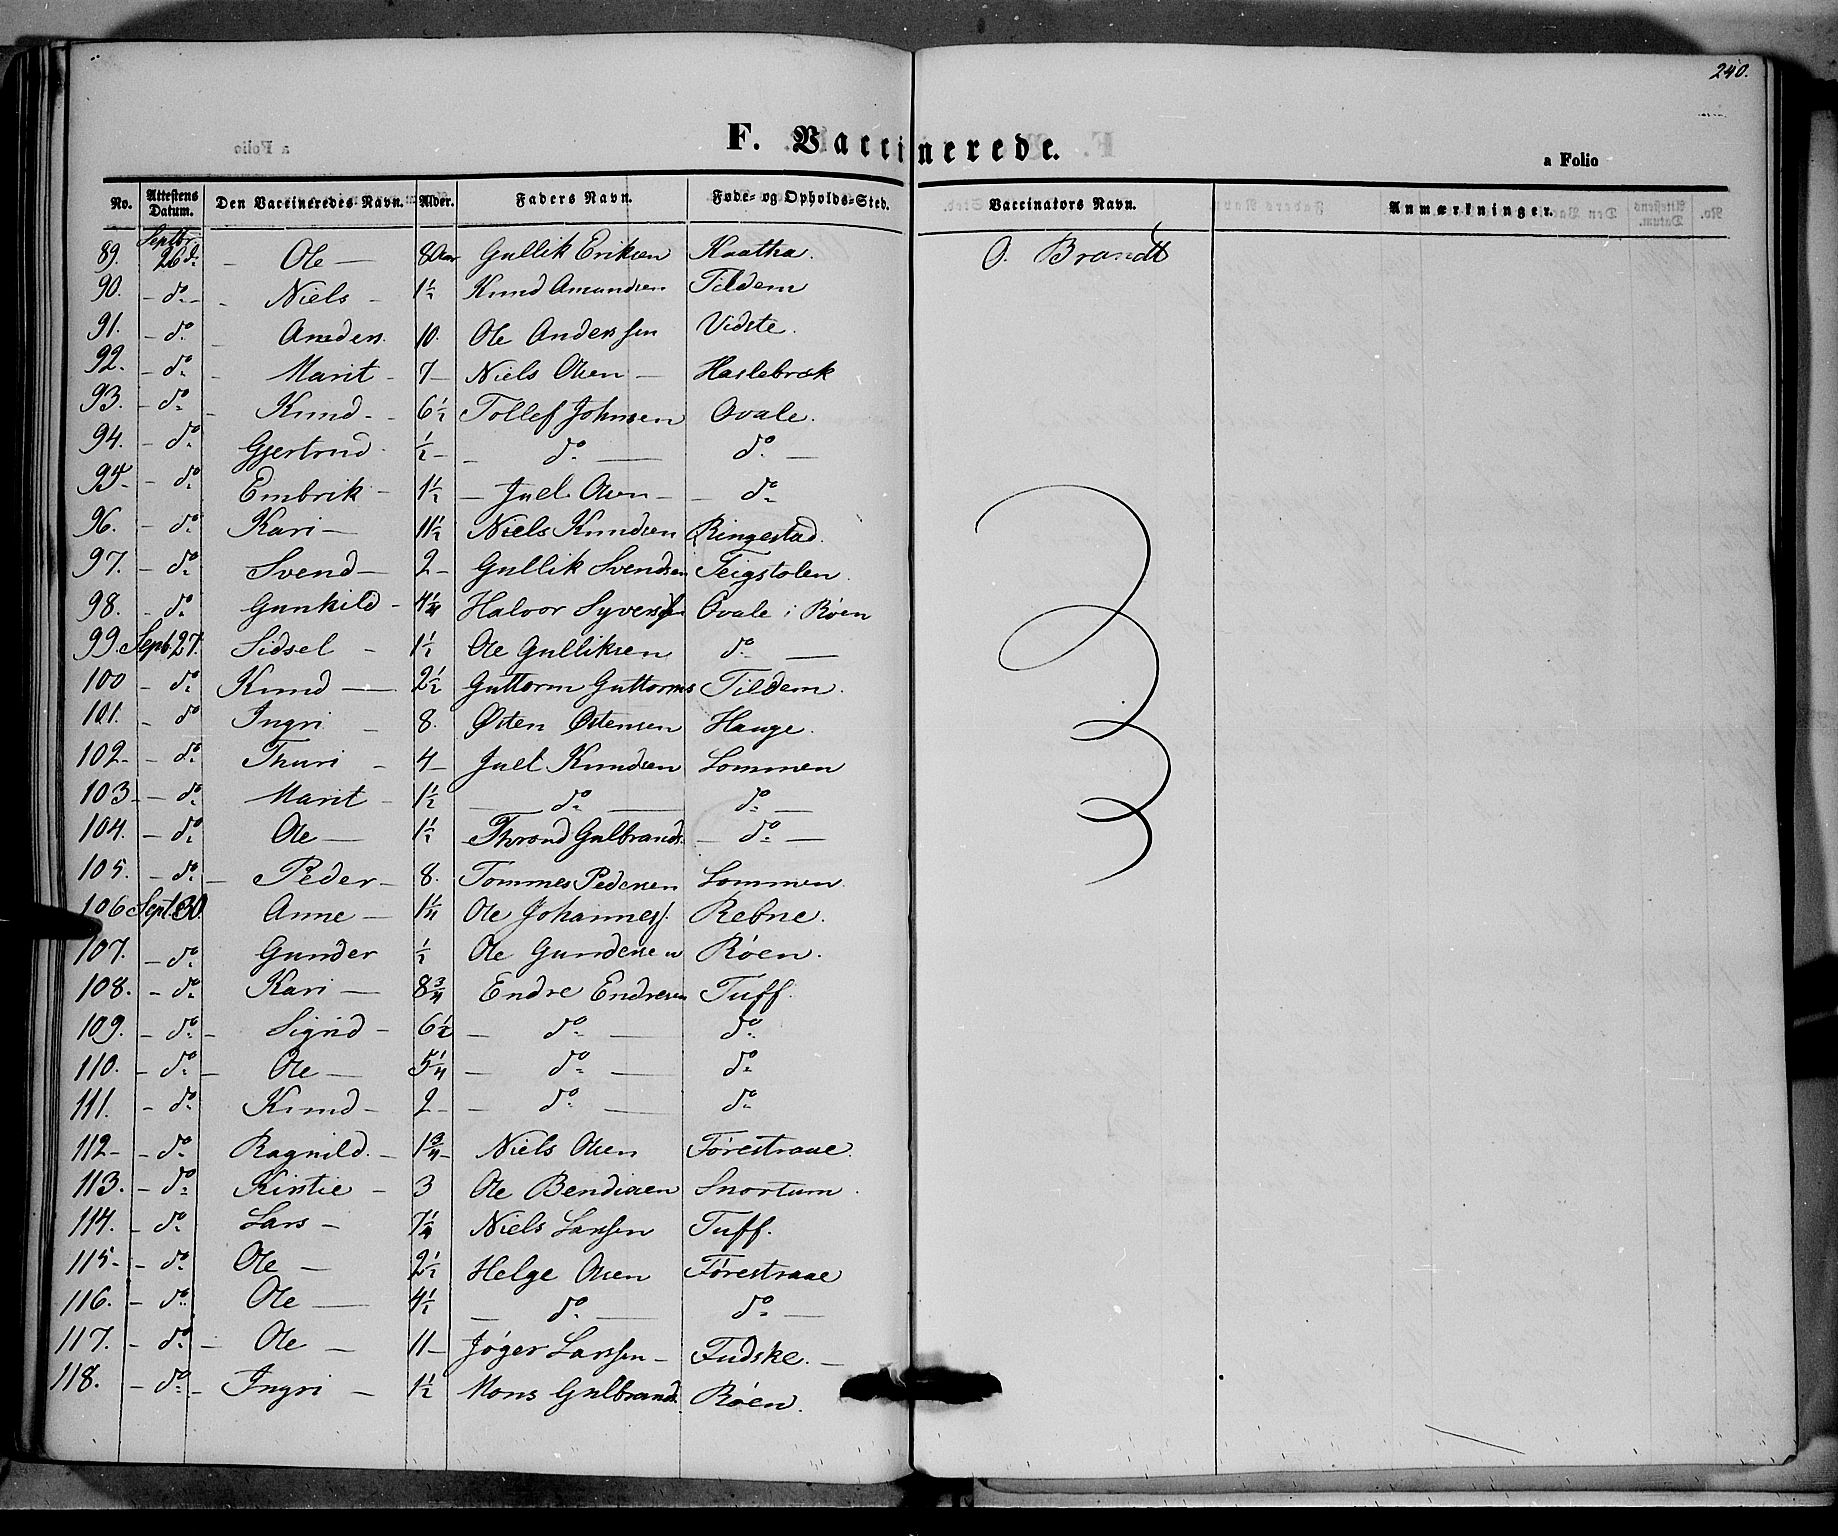 240.
F. Vaccinerede.
a Folio
No. Attestens Datum. Den Vaccineredes Navn. Alder. Faders Navn. Føde- og Opholds-Sted. Vaccinators Navn. Anmærkninger.
89. Septbr 26de - Ole - 8 Aar Gullik Eriksen Kaatha. O. Brandt
90. - do - - Niels - 1½ Knud Amundsen Tildem
91. - do - Anders. 10. Ole Anderssen Vidste.
92. - do - Marit - 7 - Niels Olsen - Haslebrek
93. - do - Knud - 6½ Tollef Johnsen Qvale.
94. - do Gjertrud. ½ - - do - do -
95 - - do Embrik - 1½ - Juel Olsen - - do
96. - do Kari - 11½ Niels Knudsen Ringestad.
97. - do Svend - 2 - Gullik Svendsen Feigstolen.
98. - do Gunhild - 4¼ Halvor Syversen Qvale i Røen
99. Sept. 27. Sidsel - 1½ Ole Gulliksen do -
100 - do Knud - 2½ Guttorm Guttorms Tildem.
101. - do Ingri - 8. Østen Østensen Hauge.
102 - - do Thuri - 4 - Juel Knudsen Lommen
103 - - do Marit - 1½ - do - do -
104. - do Ole - 1½ Thrond Gulbrands. - do -
105. - do - Peder - 8. Tommes Pedersen Lommen.
106 Sept. 30. Anne - 1¼ Ole Johannes. Rebne.
107. - do Gunder ½ Ole Gundersen Røen.
108. - do Kari - 8¾ Endre Endresen Tuff.
109. - do - Sigrid - 6½ - do - do
110. - do - Ole - 5¼ - do - do
111. - do Knud - 2 - - do - do
112 - - do Ragnild. - 1¾ - Niels Olsen Førestraae.
113. - do Kirstie - 3 Ole Bendixen Snortum.
114. - do Lars - 7¼ Niels Larssen Tuff.
115 - - do Ole - 2½ Helge Olsen Førestraae
116. - do Ole - 4½ - do - do -
117. - do - Ole - 11 - Jøger Larssen - Fudske. -
118. - do - Ingri - 1½ Mons Gulbrands. Røen.